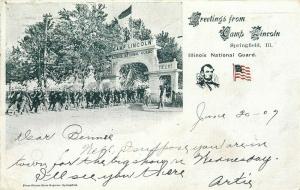 Greetings from
Camp Lincoln
Springfield, Ill.
Illinois National Guard.
CAMP LINCOLN
June 30-09
Dear Bennie
Well I suppose you are in
town for the big show on Wednesday.
I'll see you there
Artie